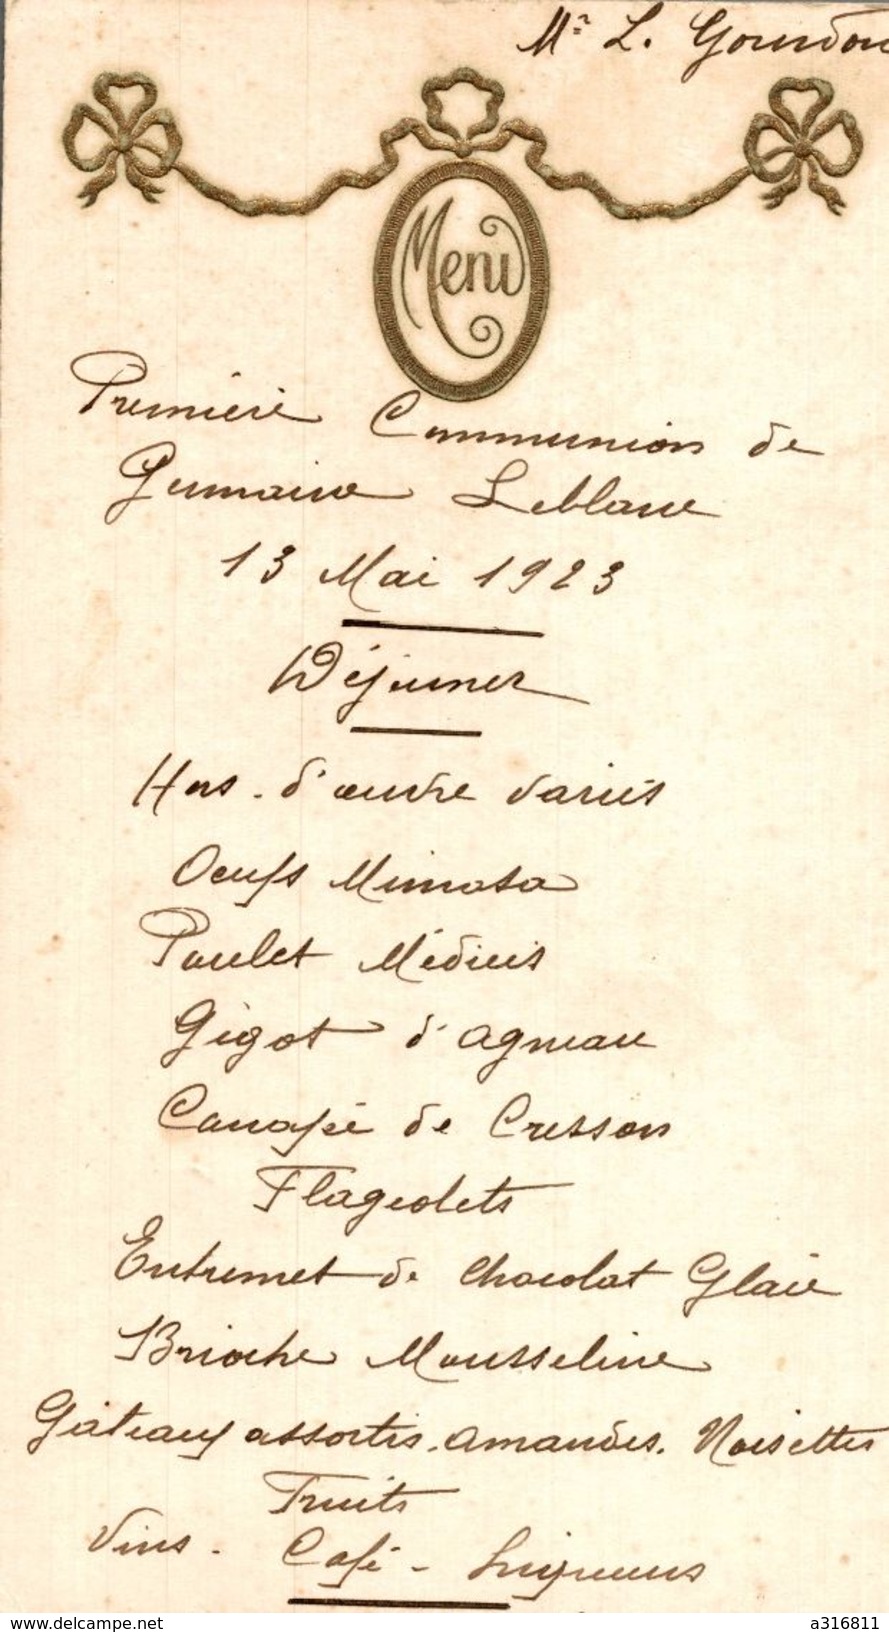 Mr L. Gourdon
Menu
Première Communion de
Germaine Leblanc
13 Mai 1923
Déjeuner
Hors-d'œuvre variés
Oeufs Mimosa
Poulet Médicis
Gigot d'agneau
Canapé de Cresson
Flageolets
Entremet de Chocolat Glacé
Brioche Mousseline
Gâteaux assortis. amandes. Noisettes
Fruits
Vins - Café - Liqueurs
www.delcampe.net
a316811